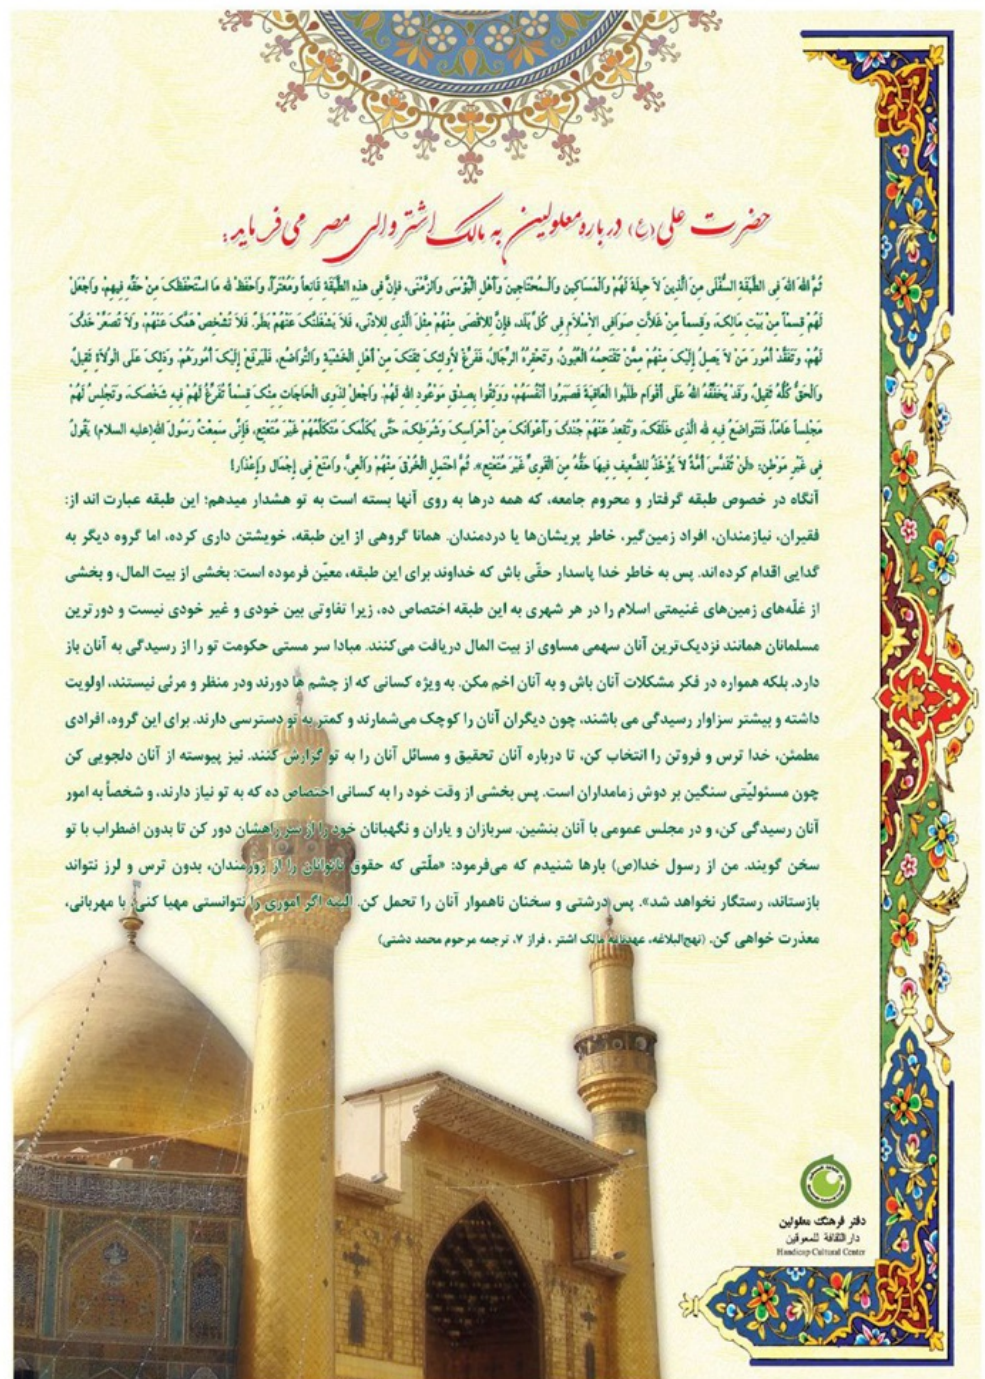 حضرت علی (ع) درباره معلولین به مالک اشتر والی مصر می‌فرماید:
ثُمَّ اللهَ اللهَ فِی الطَّبَقَةِ السُّفْلَی مِنَ الَّذِینَ لاَ حِیلَةَ لَهُمْ وَالْمَسَاکِینِ وَالْـمُحْتَاجِینَ وَأَهْلِ الْبُؤْسَی وَالزَّمْنَی، فإِنَّ فِی هذِهِ الطَّبَقَةِ قَانِعاً وَمُعْتَرّاً، وَاحْفَظْ لله مَا اسْتَحْفَظَکَ مِنْ حَقِّهِ فِیهِمْ، وَاجْعَلْ
لَهُمْ قِسماً مِنْ بَیْتِ مَالِکَ، وَقِسماً مِنْ غَلاَّتِ صَوَافِی الاْسْلاَمِ فِی کُلِّ بَلَد، فإِنَّ لِلاَقْصَی مِنْهُمْ مِثْلَ الَّذِی لِلادْنَی، فَلاَ یَشْغَلَنَّکَ عَنْهُمْ بَطَرٌ، فَلاَ تُشْخِصْ هَمَّکَ عَنْهُمْ، وَلاَ تُصَعِّرْ خَدَّکَ
لَهُمْ، وَتَفَقَّدْ أُمُورَ مَنْ لاَ یَصِلُ إِلَیْکَ مِنْهُمْ مِمَّنْ تَقْتَحِمُهُ الْعُیُونُ، وَتَحْقِرُهُ الرِّجَالُ، فَفَرِّغْ لاُولئِکَ ثِقَتَکَ مِنْ أَهْلِ الْخَشْیَةِ وَالتَّوَاضُعِ، فَلْیَرْفَعْ إِلَیْکَ أُمُورَهُمْ. وَذلِکَ عَلَی الْوُلاَةِ ثَقِیلٌ،
وَالْحَقُّ کُلُّهُ ثَقِیلٌ، وَقَدْ یُخَفِّفُهُ اللهُ عَلَی أَقْوَام طَلَبُوا الْعَاقِبَةَ فَصَبَّرُوا أَنْفُسَهُمْ، وَوَثِقُوا بِصِدْقِ مَوْعُودِ اللهِ لَهُمْ. وَاجْعلْ لِذَوِی الْحَاجَاتِ مِنْکَ قِسماً تُفَرِّغُ لَهُمْ فِیهِ شَخْصَکَ، وَتَجْلِسُ لَهُمْ
مَجْلِساً عَامّاً، فَتَتَواضَعُ فِیهِ لله الَّذِی خَلَقَکَ، وَتُقْعِدُ عَنْهُمْ جُنْدَکَ وَأَعْوَانَکَ مِنْ أَحْرَاسِکَ وَشُرَطِکَ، حَتَّی یُکَلِّمَکَ مُتَکَلِّمُهُمْ غَیْرَ مُتَتَعْتِع، فَإِنِّی سَمِعْتُ رَسُولَ اللهِ(علیه السلام) یَقُولُ
فِی غَیْرِ مَوْطِن: «لَنْ تُقَدَّسَ أُمَّةٌ لاَ یُؤْخَذُ لِلضَّعِیفِ فِیهَا حَقُّهُ مِنَ الْقَوِیِّ غَیْرَ مُتَتَعْتِع». ثُمَّ احْتَمِلِ الْخُرْقَ مِنْهُمْ وَالْعِیَّ، وَامْنَعْ فِی إِجْمَال وَإِعْذَار!
آنگاه در خصوص طبقه گرفتار و محروم جامعه، که همه درها به روی آنها بسته است به تو هشدار میدهم؛ این طبقه عبارت اند از:
فقیران، نیازمندان، افراد زمین‌گیر، خاطر پریشان‌ها یا دردمندان. همانا گروهی از این طبقه، خویشتن داری کرده، اما گروه دیگر به
گدایی اقدام کرده‌اند. پس به خاطر خدا پاسدار حقّی باش که خداوند برای این طبقه، معیّن فرموده است: بخشی از بیت المال، و بخشی
از غلّه‌های زمین‌های غنیمتی اسلام را در هر شهری به این طبقه اختصاص ده، زیرا تفاوتی بین خودی و غیر خودی نیست و دورترین
مسلمانان همانند نزدیک‌ترین آنان سهمی مساوی از بیت المال دریافت می‌کنند. مبادا سر مستی حکومت تو را از رسیدگی به آنان باز
دارد. بلکه همواره در فکر مشکلات آنان باش و به آنان اخم مکن. به ویژه کسانی که از چشم ها دورند ودر منظر و مرئی نیستند، اولویت
داشته و بیشتر سزاوار رسیدگی می باشند، چون دیگران آنان را کوچک می‌شمارند و کمتر به تو دسترسی دارند. برای این گروه، افرادی
مطمئن، خدا ترس و فروتن را انتخاب کن، تا درباره آنان تحقیق و مسائل آنان را به تو گزارش کنند. نیز پیوسته از آنان دلجویی کن
چون مسئولیّتی سنگین بر دوش زمامداران است. پس بخشی از وقت خود را به کسانی اختصاص ده که به تو نیاز دارند، و شخصاً به امور
آنان رسیدگی کن، و در مجلس عمومی با آنان بنشین. سربازان و یاران و نگهبانان خود را از سر راهشان دور کن تا بدون اضطراب با تو
سخن گویند. من از رسول خدا(ص) بارها شنیدم که می‌فرمود: «ملّتی که حقوق ناتوانان را از زورمندان، بدون ترس و لرز نتواند
بازستاند، رستگار نخواهد شد». پس درشتی و سخنان ناهموار آنان را تحمل کن. البته اگر اموری را نتوانستی مهیا کنی، با مهربانی،
معذرت خواهی کن. (نهج‌البلاغه، عهدنامه مالک اشتر ، فراز ۷، ترجمه مرحوم محمد دشتی)
دفتر فرهنگ معلولین
دار الثقافة للمعوقین
Handicap Cultural Center